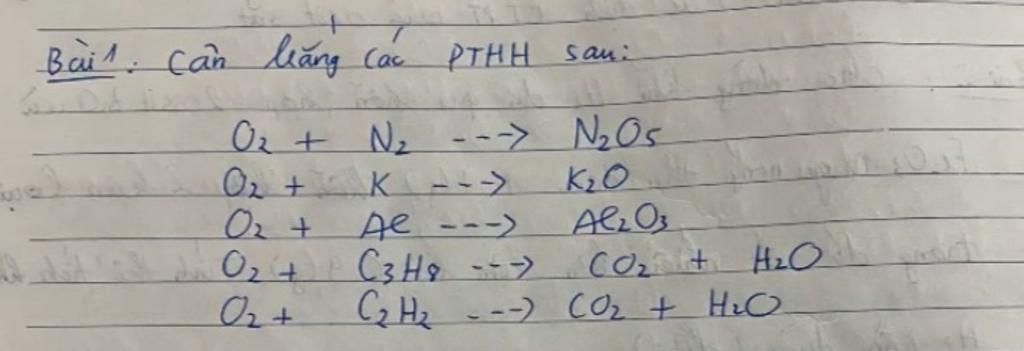 Bài 1: Cân bằng các PTHH sau:
O₂ + N₂ ---> N₂O₅
O₂ + K ---> K₂O
O₂ + Al ---> Al₂O₃
O₂ + C₃H₈ ---> CO₂ + H₂O
O₂ + C₂H₂ ---> CO₂ + H₂O